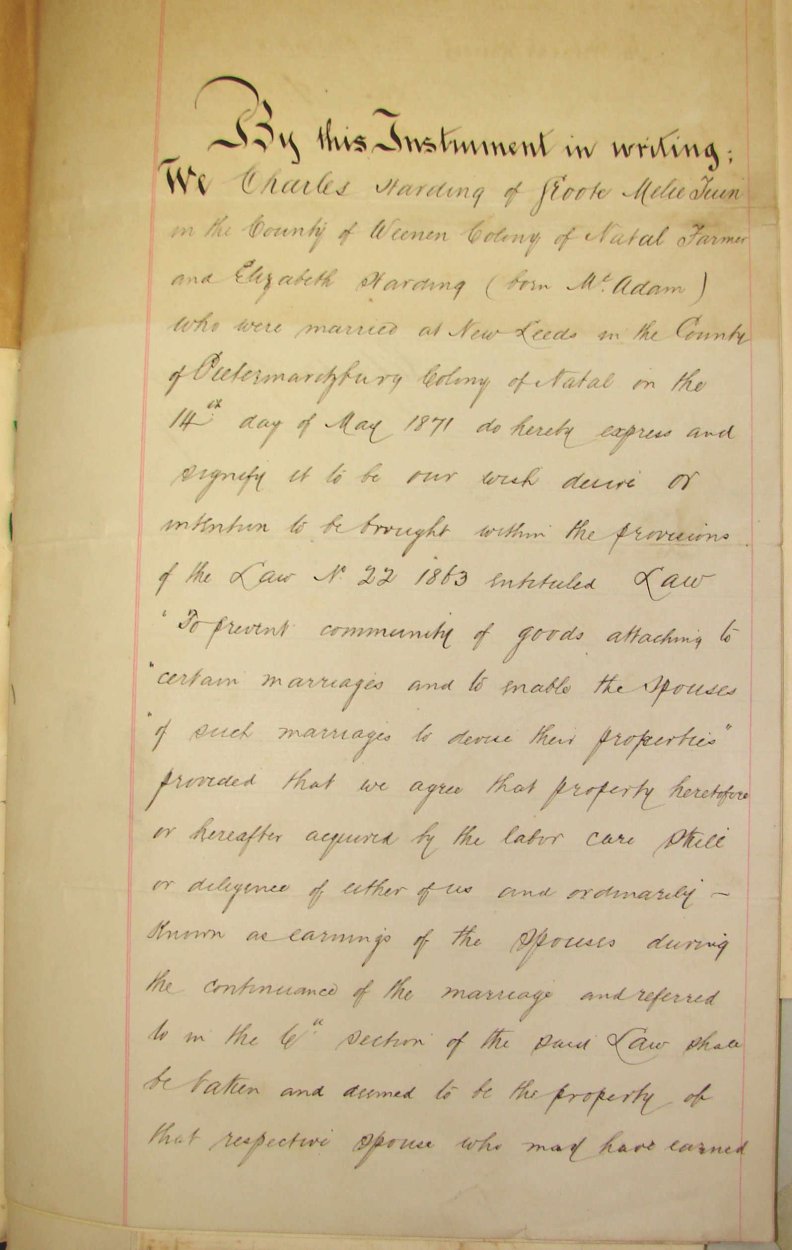 By this Instrument in writing;
We Charles Harding of Groote Melie Tuin
in the County of Weenen Colony of Natal Farmer
and Elizabeth Harding (born Mc Adam)
who were married at New Leeds in the County
of Pietermaritzburg Colony of Natal on the
14th day of May 1871 do hereby express and
signify it to be our wish desire or
intention to be brought within the provisions
of the Law No 22 1863 entituled Law
"To prevent community of goods attaching to
"certain marriages and to enable the spouses
"of such marriages to devise their properties"
provided that we agree that property heretofore
or hereafter acquired by the labor care skill
or diligence of either of us and ordinarily –
known as earnings of the spouses during
the continuance of the marriage and referred
to in the 6th section of the said Law shall
be taken and deemed to be the property of
that respective spouse who may have earned